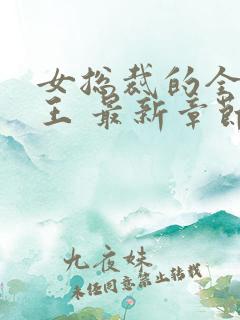 女总裁的全
王 最新章节
九夜妹
未经同意禁止转载